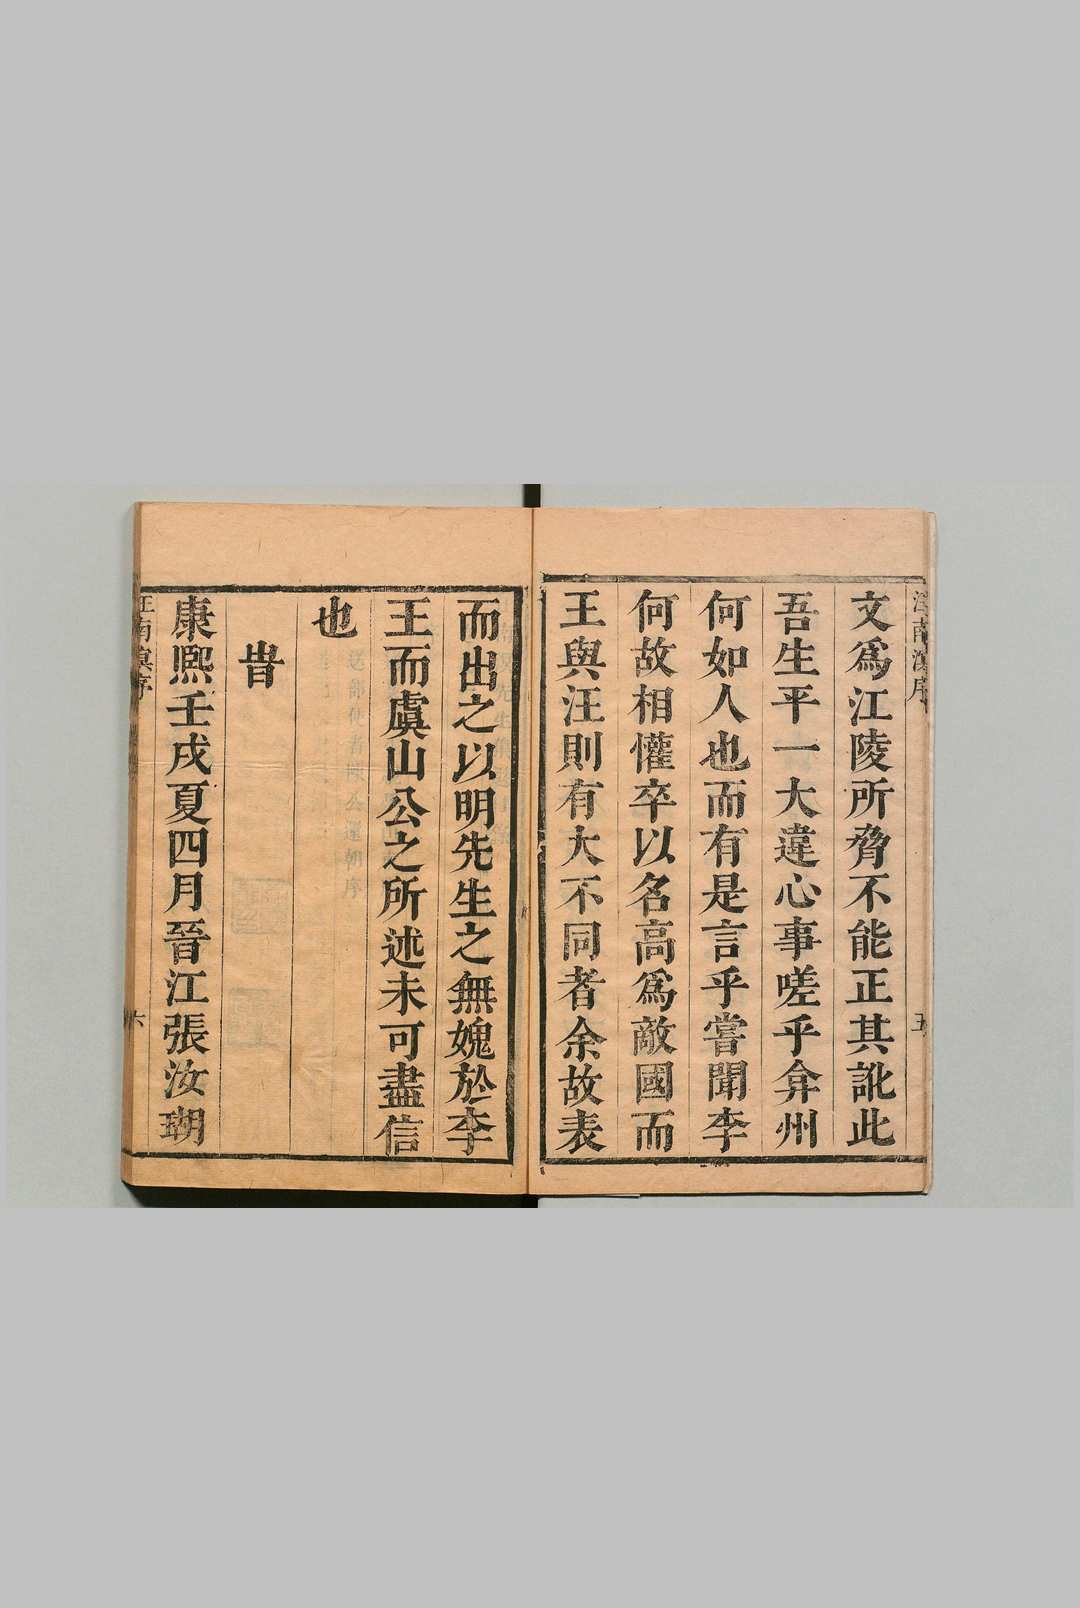 文爲江陵所脅不能正其訛此
吾生平一大違心事嗟乎弇州
何如人也而有是言乎嘗聞李
何故相懽卒以名高爲敵國而
王與汪則有大不同者余故表
而出之以明先生之無媿於李
王而虞山公之所述未可盡信
也
旹
康熙壬戌夏四月晉江張汝瑚
汪南溟序
五
汪南溟序
六